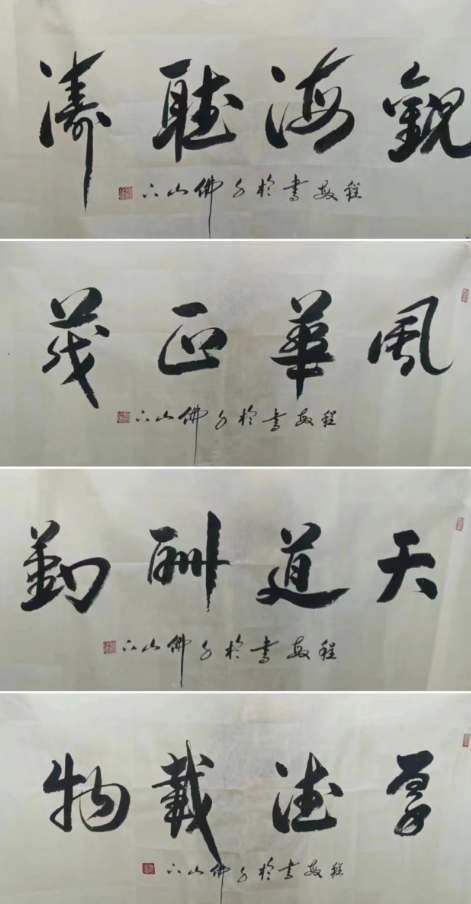 觀海聽濤
程敏書於千佛山下
風華正茂
程敏書於千佛山下
天道酬勤
程敏書於千佛山下
厚德載物
程敏書於千佛山下